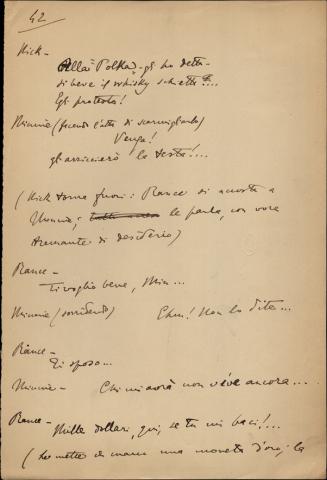 42
Nick –
"Alla "Polka" – gli ho detto –
si beve il whisky schietto....
Egli protesta!
Minnie (facendo l'atto di scarmigliarlo)
Venga!
gli arriccierò la testa!...
(Nick torna fuori: Rance si accosta a
Minnie, le parla, con voce
tremante di desiderio)
Rance –
Ti voglio bene, Min...
Minnie (sorridendo) Ehm! Non lo dite...
Rance –
Ti sposo...
Minnie – Chi mi avrà non vive ancora...
Rance – Mille dollari, qui, se tu mi baci!...
(ha mette di mano una moneta d'oro; la